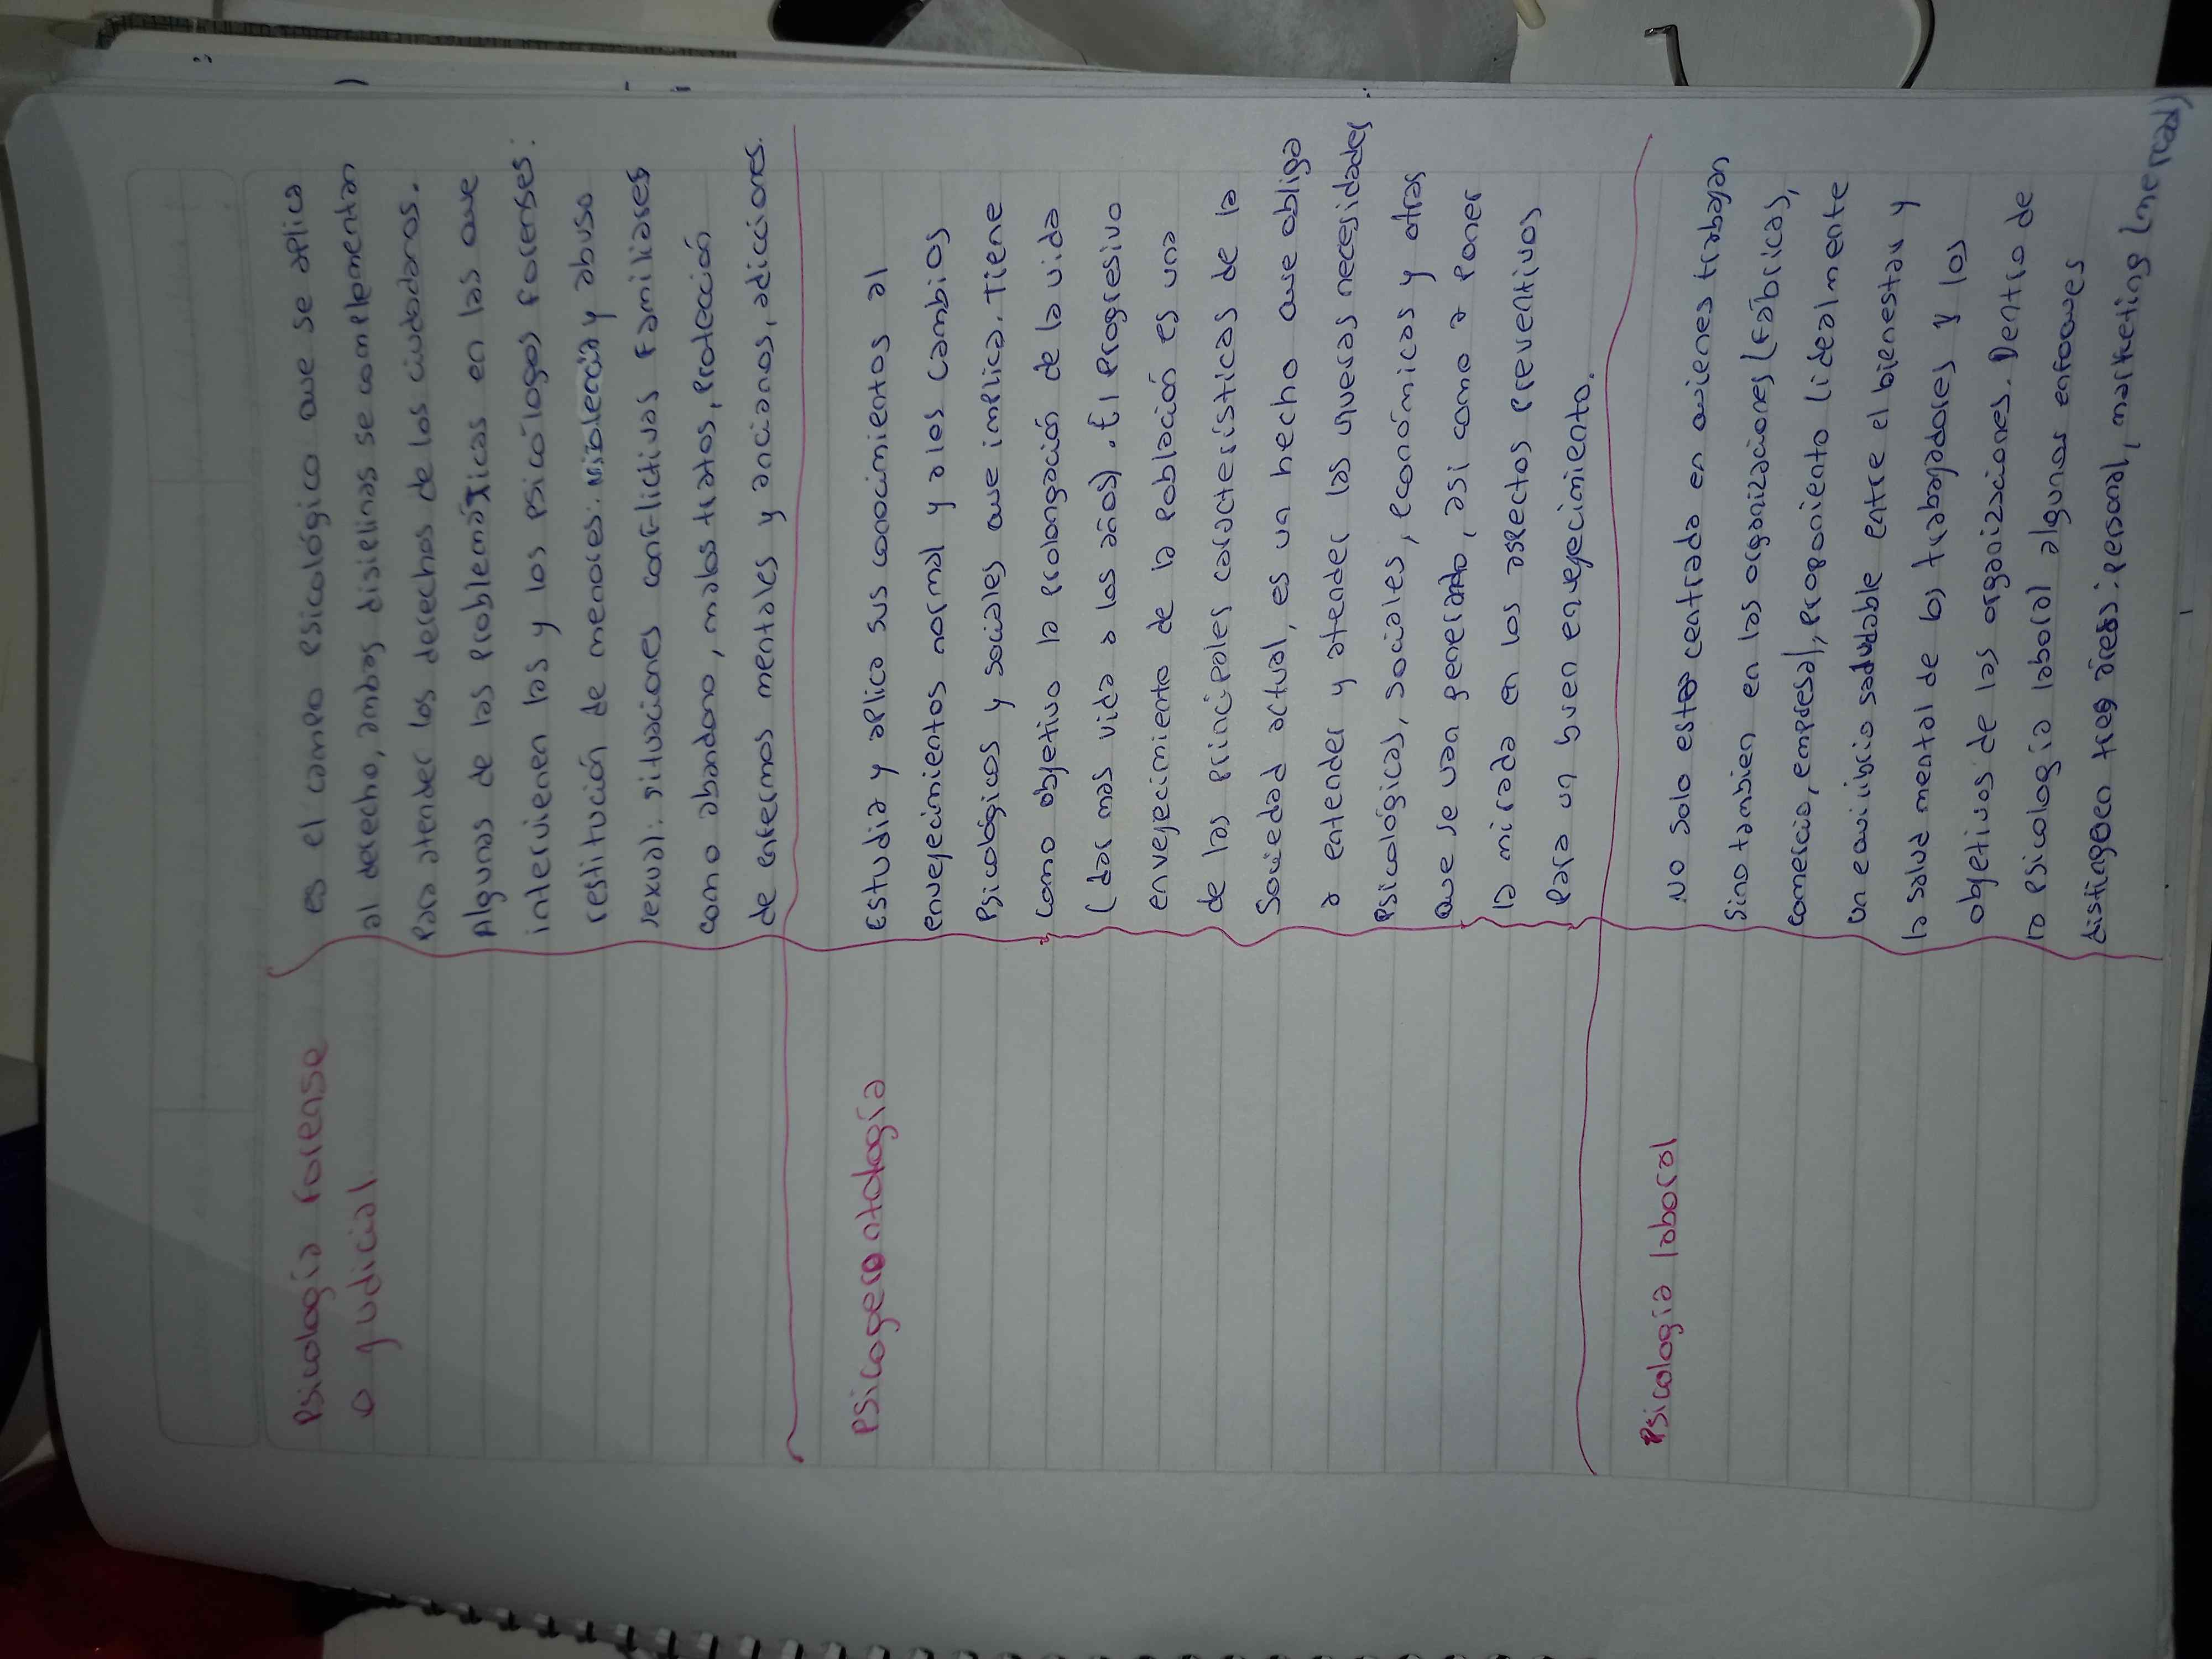 Psicología forense
o judicial
es el campo psicológico que se aplica
al derecho, ambas disiplinas se complementan
para atender los derechos de los ciudadanos.
Algunas de las problemáticas en las que
intervienen las y los psicólogos forenses:
restitución de menores: violencia y abuso
sexual: situaciones conflictivas familiares
como abandono, malos tratos, protección
de enfermos mentales y ancianos, adicciones.
Psicogerontología
estudia y aplica sus conocimientos al
envejecimientos normal y a los cambios
psicológicos y sociales que implica. Tiene
como objetivo la prolongación de la vida
(dar mas vida a los años). El progresivo
envejecimiento de la población es una
de las principales características de la
sociedad actual, es un hecho que obliga
a entender y atender las nuevas necesidades
psicológicas, sociales, económicas y otras
que se van generando, asi como a poner
la mirada en los aspectos preventivos
para un buen envejecimiento.
Psicología laboral
No solo esta centrada en quienes trabajan
sino tambien en las organizaciones (fábricas,
comercio, empresa), proponiento (idealmente
un equilibrio saludable entre el bienestar y
la salud mental de los trabajadores y los
objetivos de las organizaciones. Dentro de
la psicología laboral algunos enfoques
distingen tres áreas: personal, marketing (mercad)